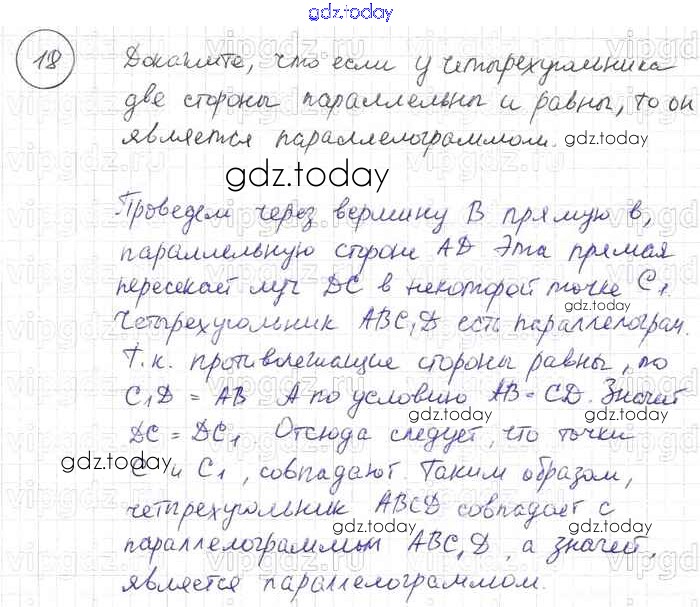 gdz.today
18 Докажите, что если у четырехугольника
две стороны параллельны и равны, то он
является параллелограммом.
gdz.today
gdz.today
Проведем через вершину В прямую в,
параллельную стороне AD Эта прямая
пересекай луч DC в некоторой точке C1.
gdz.today
Четырехугольник ABC1D есть параллелограм.
Т.к. противолежащие стороны равны, то
C1D = AB А по условию AB = CD. Значит
gdz.today
DC = DC1 Отсюда следует, что точки
gdz.today
C и C1, совпадают. Таким образом,
четырехугольник ABCD совпадает с
gdz.today
gdz.today
параллелограммом ABC1D, а значит,
является параллелограммом.
gdz.today